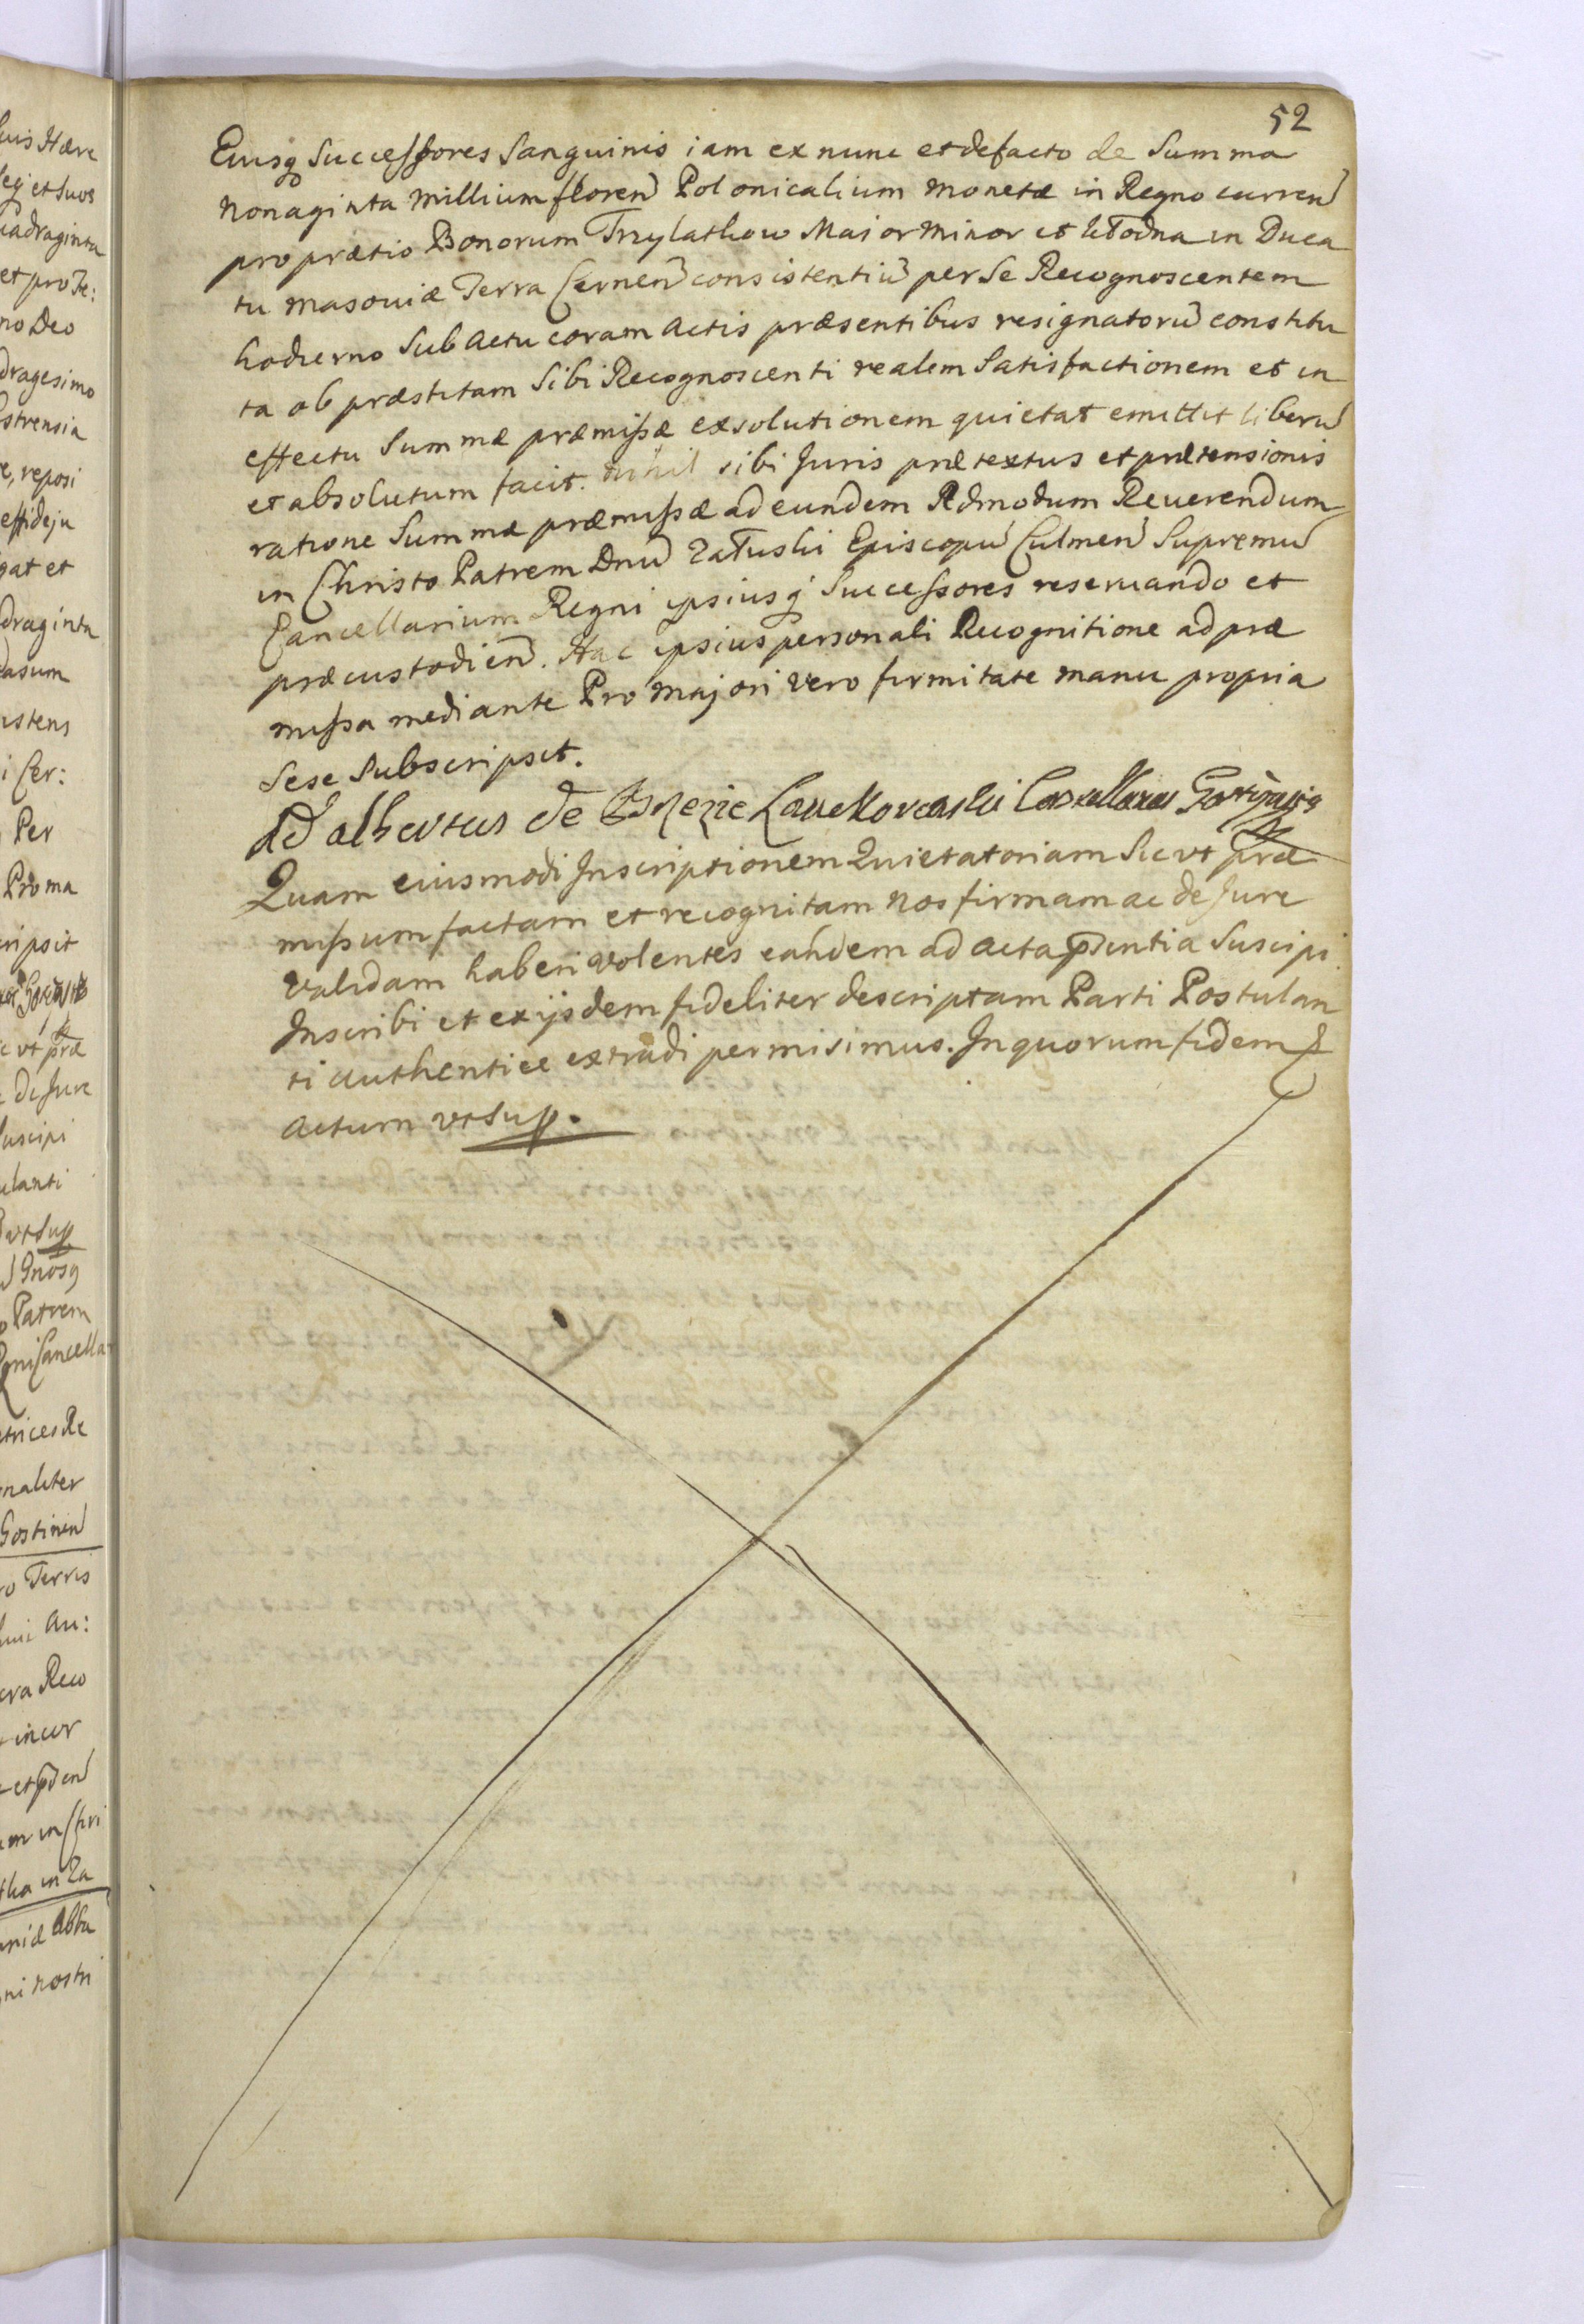 52
Eiusq Successores Sanguinis iam ex nunc et defacto de Summa
Nonaginta Millium floren Polonicalium Monetæ in Regno curren
pro prætio Bonorum Trzylatkow Maior Minor et in Duca
tu Masoviæ Terra Cernen consistentiu per Se Recognoscentem
hodierno Sub Actu coram Actis præsentibus resignatoru constitu
ta ob præstitam Sibi Recognoscenti realem Satisfactionem et in
effectu Summæ præmissæ exsolutionem quietat emittit liberu
et absolutum facit. nihil sibi Juris prætextus et prætensionis
ratione Summæ præmissæ ad eundem Admodum Reverendum
in Christo Patrem Dnu Załuski Episcopu Culmen Supremu
Cancellarium Regni ipsiusq Successores reservando et
præcustodien. Hac ipsius personali Recognitione ad præ
missa mediante Pro Majori vero firmitate manu propria
Sese Subscripsit.
Adalbertus de
Quam eiusmodi Inscriptionem Quietatoriam Sic ut præ
missum factam et recognitam Nos firmam ac de Jure
Validam haberi volentes eandem ad Acta psentia Suscipi
Inscribi et ex ijsdem fideliter descriptam Parti Postulan
ti authentice extradi permisimus. In quorum fidem
Actum ut Sup.
uis Hære
et Suos
uadraginta
et pro Te:
no Deo
dragesimo
strensia
reposi
effideju
gat et
draginta
asum
istens
i Cer:
Per
Pro ma
ripsit
c ut præ
De Jure
uscipi
ulanti
ut Sup
Patrem
Cancella
trices Re
naliter
Gostinen
ro Terris
Au:
Reco
incur
et pden
in Za
ni nostri